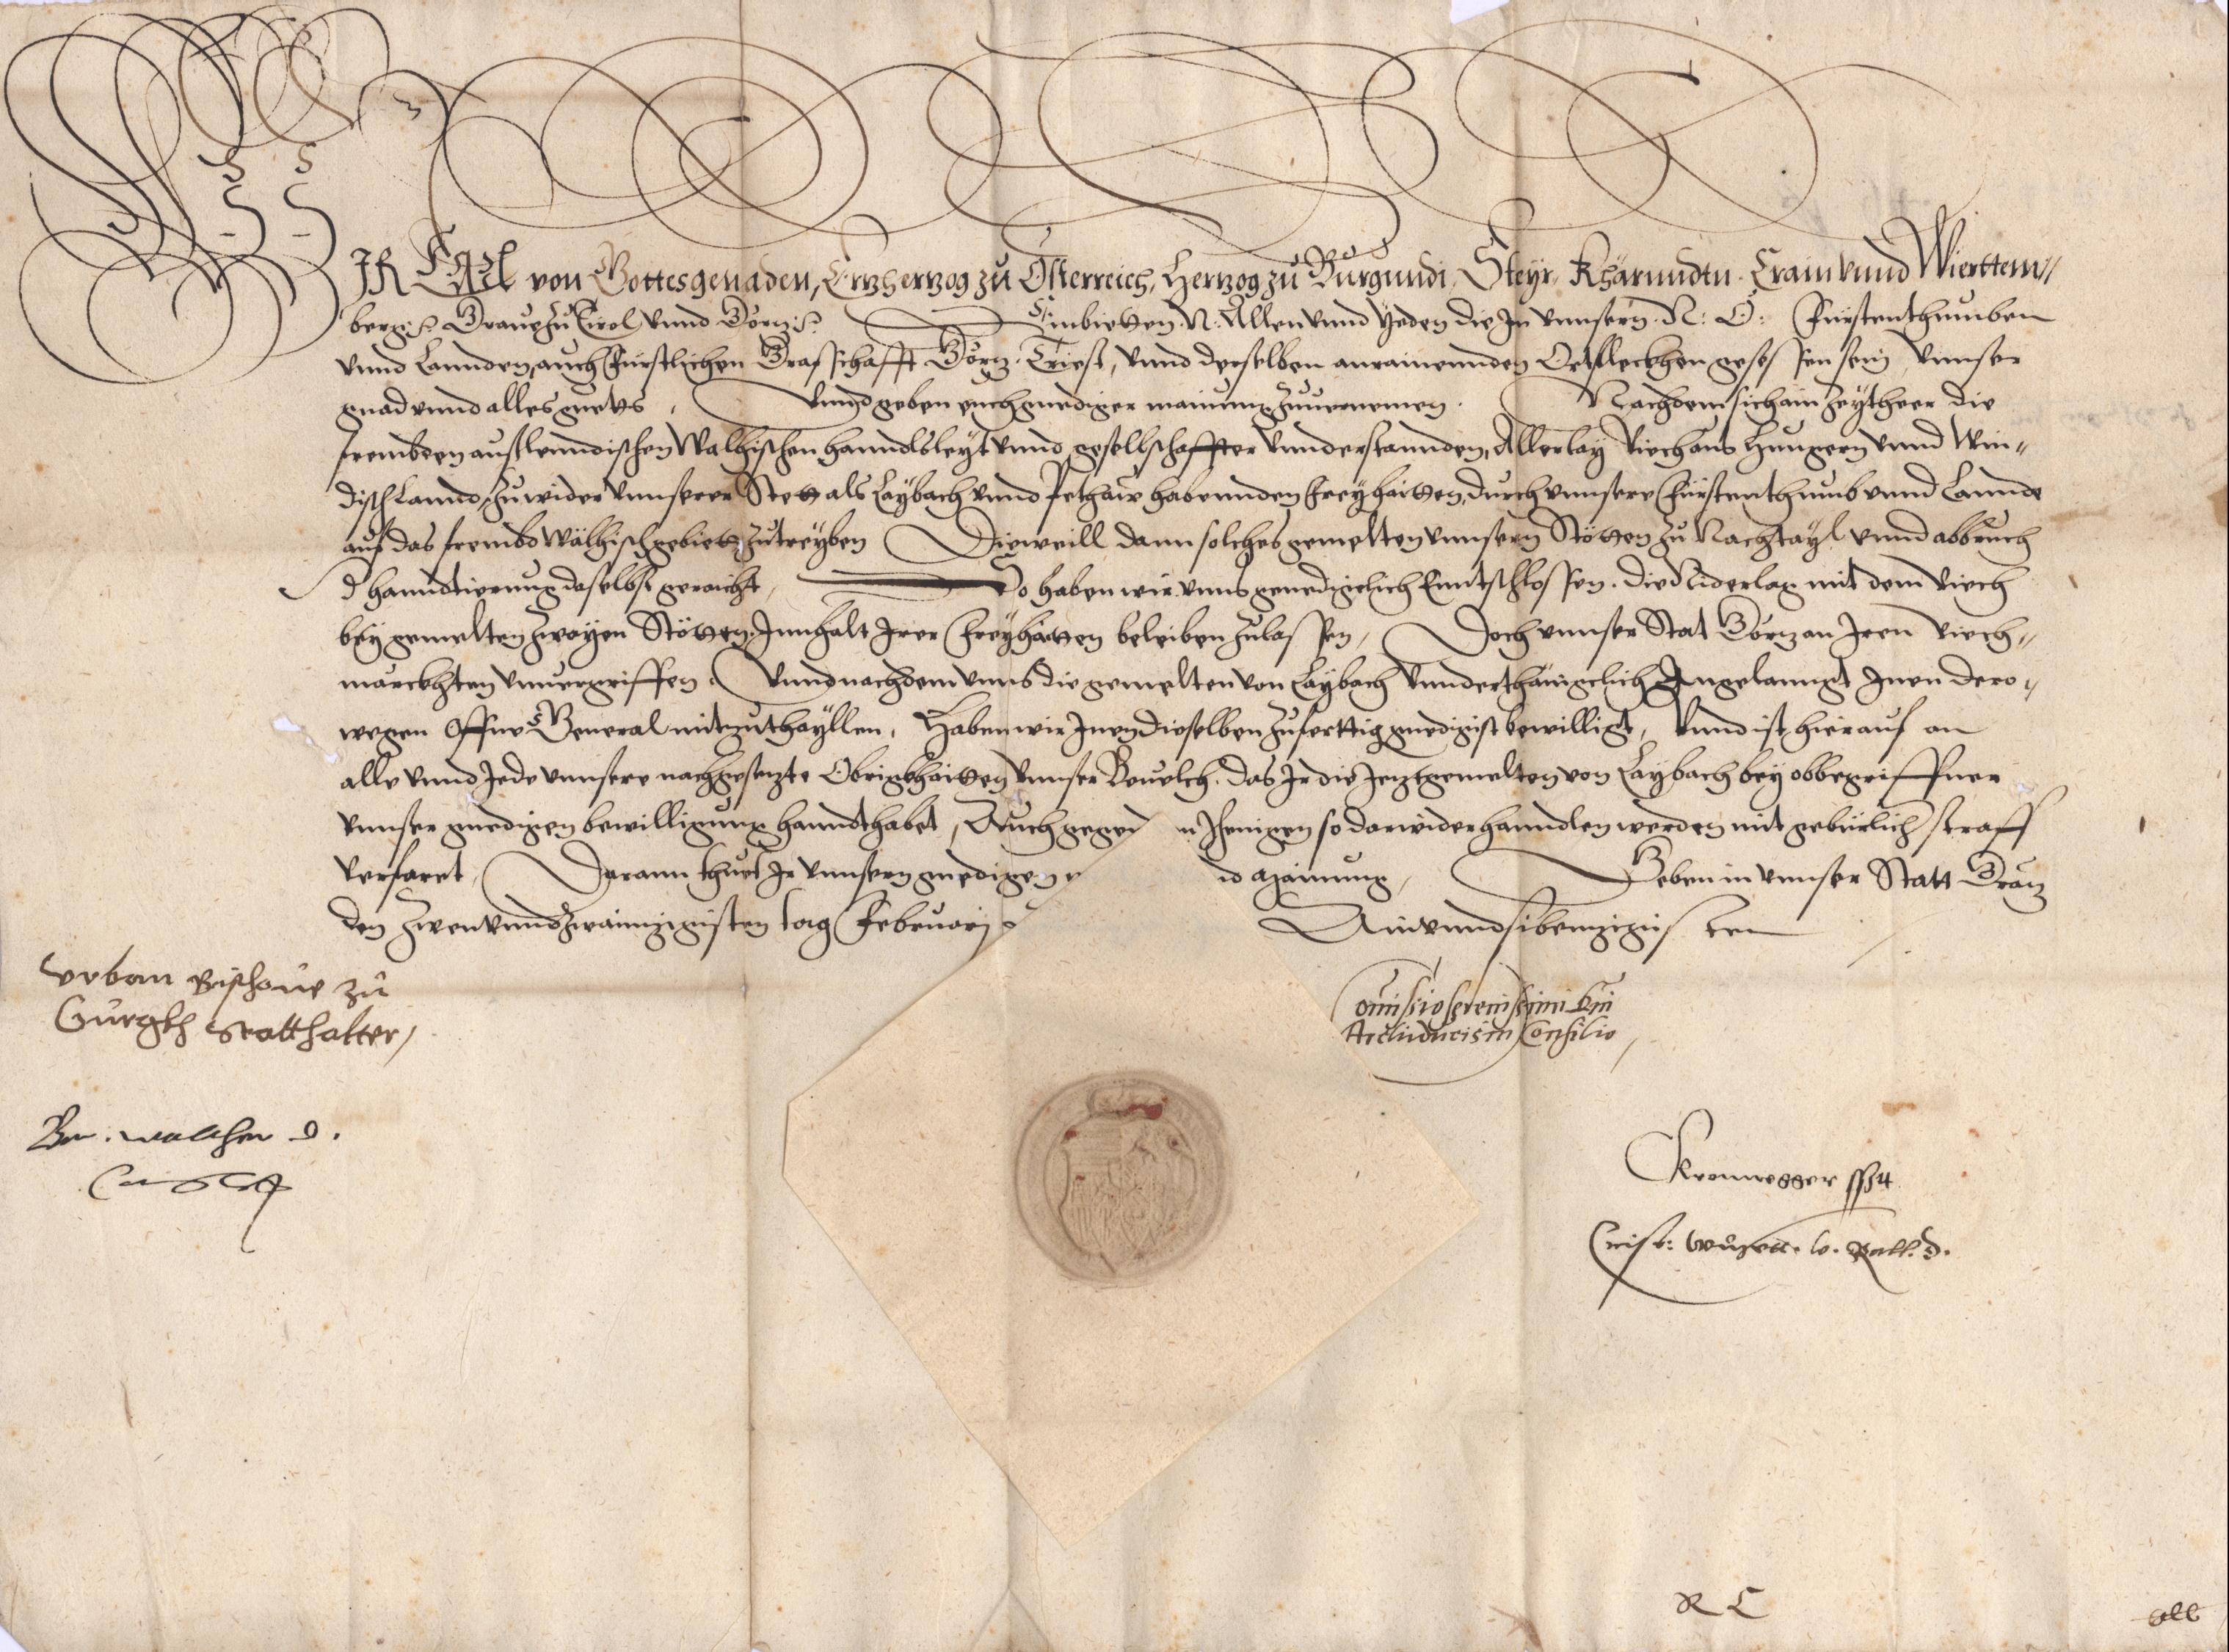 WIR Carl von Gottes genaden, Ertzhertzog zu Österreich, Hertzog zu Burgundi, Steyr, Khärnndtn, Crain vnnd Wierttem//
berg ꝛc. Graue zu Tirol vnnd Görz ꝛc. Embietten N: Allen vnnd Yeden die In vnnsern N: Ö: Fürstenthumben
vnnd Lannden, auch Fürstlichen Graffschafft Görz, Triest, vnnd derselben anrainennden Ortfleckhen gesessen sein, Vnnser
gnad vnnd alles guetts, Vnnd geben euch gnediger mainung zuuernemen. Nachdem sich ain Zeytheer die
frembden auslenndischen Walhischen hanndlsleyt vnnd gesellschaffter vnnderstannden, Allerlay Viech aus Hungern vnnd Win//
disch Lannd, zuwider vnnserer Stett als Laybach vnnd Pethaw habennden Freyhaitten, durch vnnsere Fürstenthumb vnnd Lannde
auf das frembd Wälhisch gebiett zutreyben Dieweill dann solches gemelten vnnsern Stötten zu Nachtayl vnnd abbruch
d hanndtierung daselbst geraicht, So haben wir vnns genedigelich Enntschlossen. die Niderlag mit dem Viech
bey gemelten zwayen Stötten, Innhalt Irer Freyhaitten beleiben zulassen, Doch vnnser Stat Görz an Iren Viech//
märckhten vnuergriffen. Vnnd nachdem vnns die gemelten von Laybach vnnderthänigelich Angelanngt Inen dero//
wegen Offne General mitzuthayllen, Haben wir Inen dieselben zuferttig gnedigist bewilligt, Vnnd ist hierauf an
alle vnnd Jede vnnsere nachgesezte Obrigkhaitten vnnser Beuelch. das Ir die Jeztgemelten von Laybach bey obbegriffner
vnnser gnedigen bewilligung hanndthabet, Auch gegen n Jhenigen so darwider hanndlen werden mit gebürlich straff
verfaret, Daran thuet Ir vnnsern gnedigen d Mainung, Geben in vnnser Statt Gräz
den zwenvnndzwainzigisten tag Februarj Ainvnndsibenzigisten
Vrban Bischoue zu
Gurgkh Statthalter,
Comissio Serenissimi Dni
Archiducis in Consilio
Walther D.
Cantzler
Kronnegger
Crist:
R C